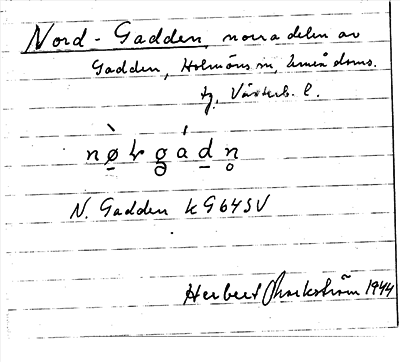 Nord-Gadden, norra delen av
Gadden, Holmöns sn, Umeå doms.
tg, Västerb. l.
nø̠ɫgád̠n̥
N. Gadden KG64SV
Herbert Markström 1944